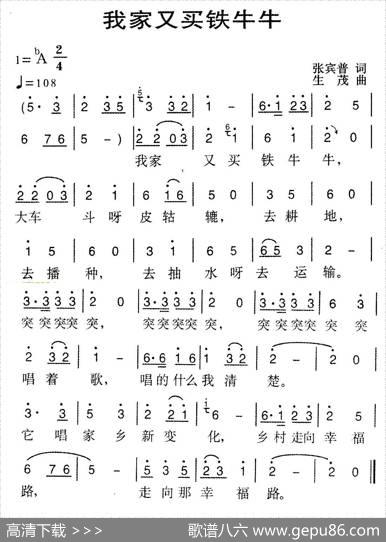 我家又买铁牛牛
1=ᵇA 2/4
♩=108
张宾普 词
生 茂 曲
(5· 3 2 35 3 32 1 - 6·1 23 2 5
6 76 5 -) 2 203 2 1 6 0 1 2
我家 又 买 铁 牛 牛,
2203 2 1 6 16 5 0 3 5 2 0
大车 斗 呀 皮 轱 辘, 去 耕 地,
1 5 6 0 3 1 6 5 65 3 2 -
去 播 种, 去 抽 水 呀 去 运 输。
3·3 33 2 0 3·3 33 2 0 3·3 33 6 3
突突突突 突, 突突突突 突, 突突突突 突 突
2 32 1 - 6·6 16 5 32 2 - 2 0
唱 着 歌, 唱的什么我 清 楚。
3· 3 2 3 2 21 6 0 6·1 23 2 5
它 唱 家 乡 新 变 化, 乡村 走向 幸 福
6 76 5 - 5 35 3 2 2 - 2 0
路, 走 向 那 幸 福 路。
高清下载 >>>
歌谱八六 www.gepu86.com